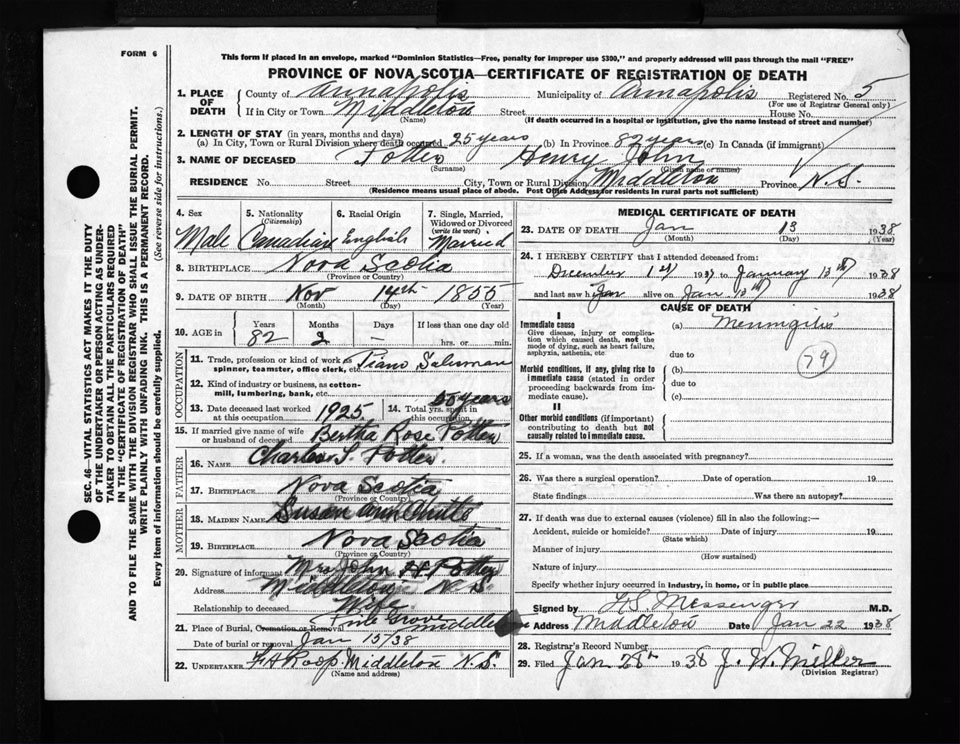 FORM 6
This form if placed in an envelope, marked "Dominion Statistics—Free, penalty for improper use $300," and properly addressed will pass through the mail "FREE"
PROVINCE OF NOVA SCOTIA—CERTIFICATE OF REGISTRATION OF DEATH
1. PLACE OF DEATH County of Annapolis Municipality of Annapolis Registered No. 5
(For use of Registrar General only)
If in City or Town Middleton Street House No.
(Name) (If death occurred in a hospital or institution, give the name instead of street and number)
2. LENGTH OF STAY (in years, months and days)
(a) In City, Town or Rural Division where death occurred 25 years (b) In Province 82 years (c) In Canada (if immigrant)
3. NAME OF DECEASED Potter Henry John
(Surname) (Given name or names)
RESIDENCE No. Street City, Town or Rural Division Middleton Province N.S.
(Residence means usual place of abode. Post Office Address for residents in rural parts not sufficient)
4. Sex 5. Nationality (Citizenship) 6. Racial Origin 7. Single, Married, Widowed or Divorced (write the word)
Male Canadian English Married
8. BIRTHPLACE Nova Scotia
(Province or Country)
9. DATE OF BIRTH Nov 14th 1855
(Month) (Day) (Year)
10. AGE in Years Months Days If less than one day old
82 2 – hrs. or min.
OCCUPATION
11. Trade, profession or kind of work as spinner, teamster, office clerk, etc. Piano Salesman
12. Kind of industry or business, as cotton-mill, lumbering, bank, etc.
13. Date deceased last worked at this occupation 1925 14. Total yrs. spent in this occupation 50 years
15. If married give name of wife or husband of deceased Bertha Rose Potter
FATHER
16. NAME Charles S. Potter
17. BIRTHPLACE Nova Scotia
(Province or Country)
MOTHER
18. MAIDEN NAME Susan Ann
19. BIRTHPLACE Nova Scotia
(Province or Country)
20. Signature of informant Mrs John H Potter
Address Middleton N.S.
Relationship to deceased Wife
21. Place of Burial, Cremation or Removal Pine Grove Middleton
Date of burial or removal Jan 15/38
22. UNDERTAKER Roop Middleton N.S.
(Name and address)
MEDICAL CERTIFICATE OF DEATH
23. DATE OF DEATH Jan 13 1938
(Month) (Day) (Year)
24. I HEREBY CERTIFY that I attended deceased from:
December 1st 1937 to January 13th 1938
and last saw him alive on Jan 13th 1938
CAUSE OF DEATH
I
Immediate cause
Give disease, injury or complication which caused death, not the mode of dying, such as heart failure, asphyxia, asthenia, etc
(a) Meningitis
due to
79
Morbid conditions, if any, giving rise to immediate cause (stated in order proceeding backwards from immediate cause).
(b)
due to
(c)
II
Other morbid conditions (if important) contributing to death but not causally related to immediate cause.
25. If a woman, was the death associated with pregnancy?
26. Was there a surgical operation? Date of operation 19
State findings Was there an autopsy?
27. If death was due to external causes (violence) fill in also the following:—
Accident, suicide or homicide? Date of injury 19
(State which)
Manner of injury
(How sustained)
Nature of injury
Specify whether injury occurred in industry, in home, or in public place
Signed by Messenger M.D.
Address Middleton Date Jan 22 1938
28. Registrar's Record Number
29. Filed Jan 28th 1938 J. W. Miller
(Division Registrar)
SEC. 46—VITAL STATISTICS ACT MAKES IT THE DUTY
OF THE UNDERTAKER OR PERSON ACTING AS UNDER-
TAKER TO OBTAIN ALL THE PARTICULARS REQUIRED
IN THE "CERTIFICATE OF REGISTRATION OF DEATH"
AND TO FILE THE SAME WITH THE DIVISION REGISTRAR WHO SHALL ISSUE THE BURIAL PERMIT.
WRITE PLAINLY WITH UNFADING INK. THIS IS A PERMANENT RECORD.
Every item of information should be carefully supplied. (See reverse side for instructions.)